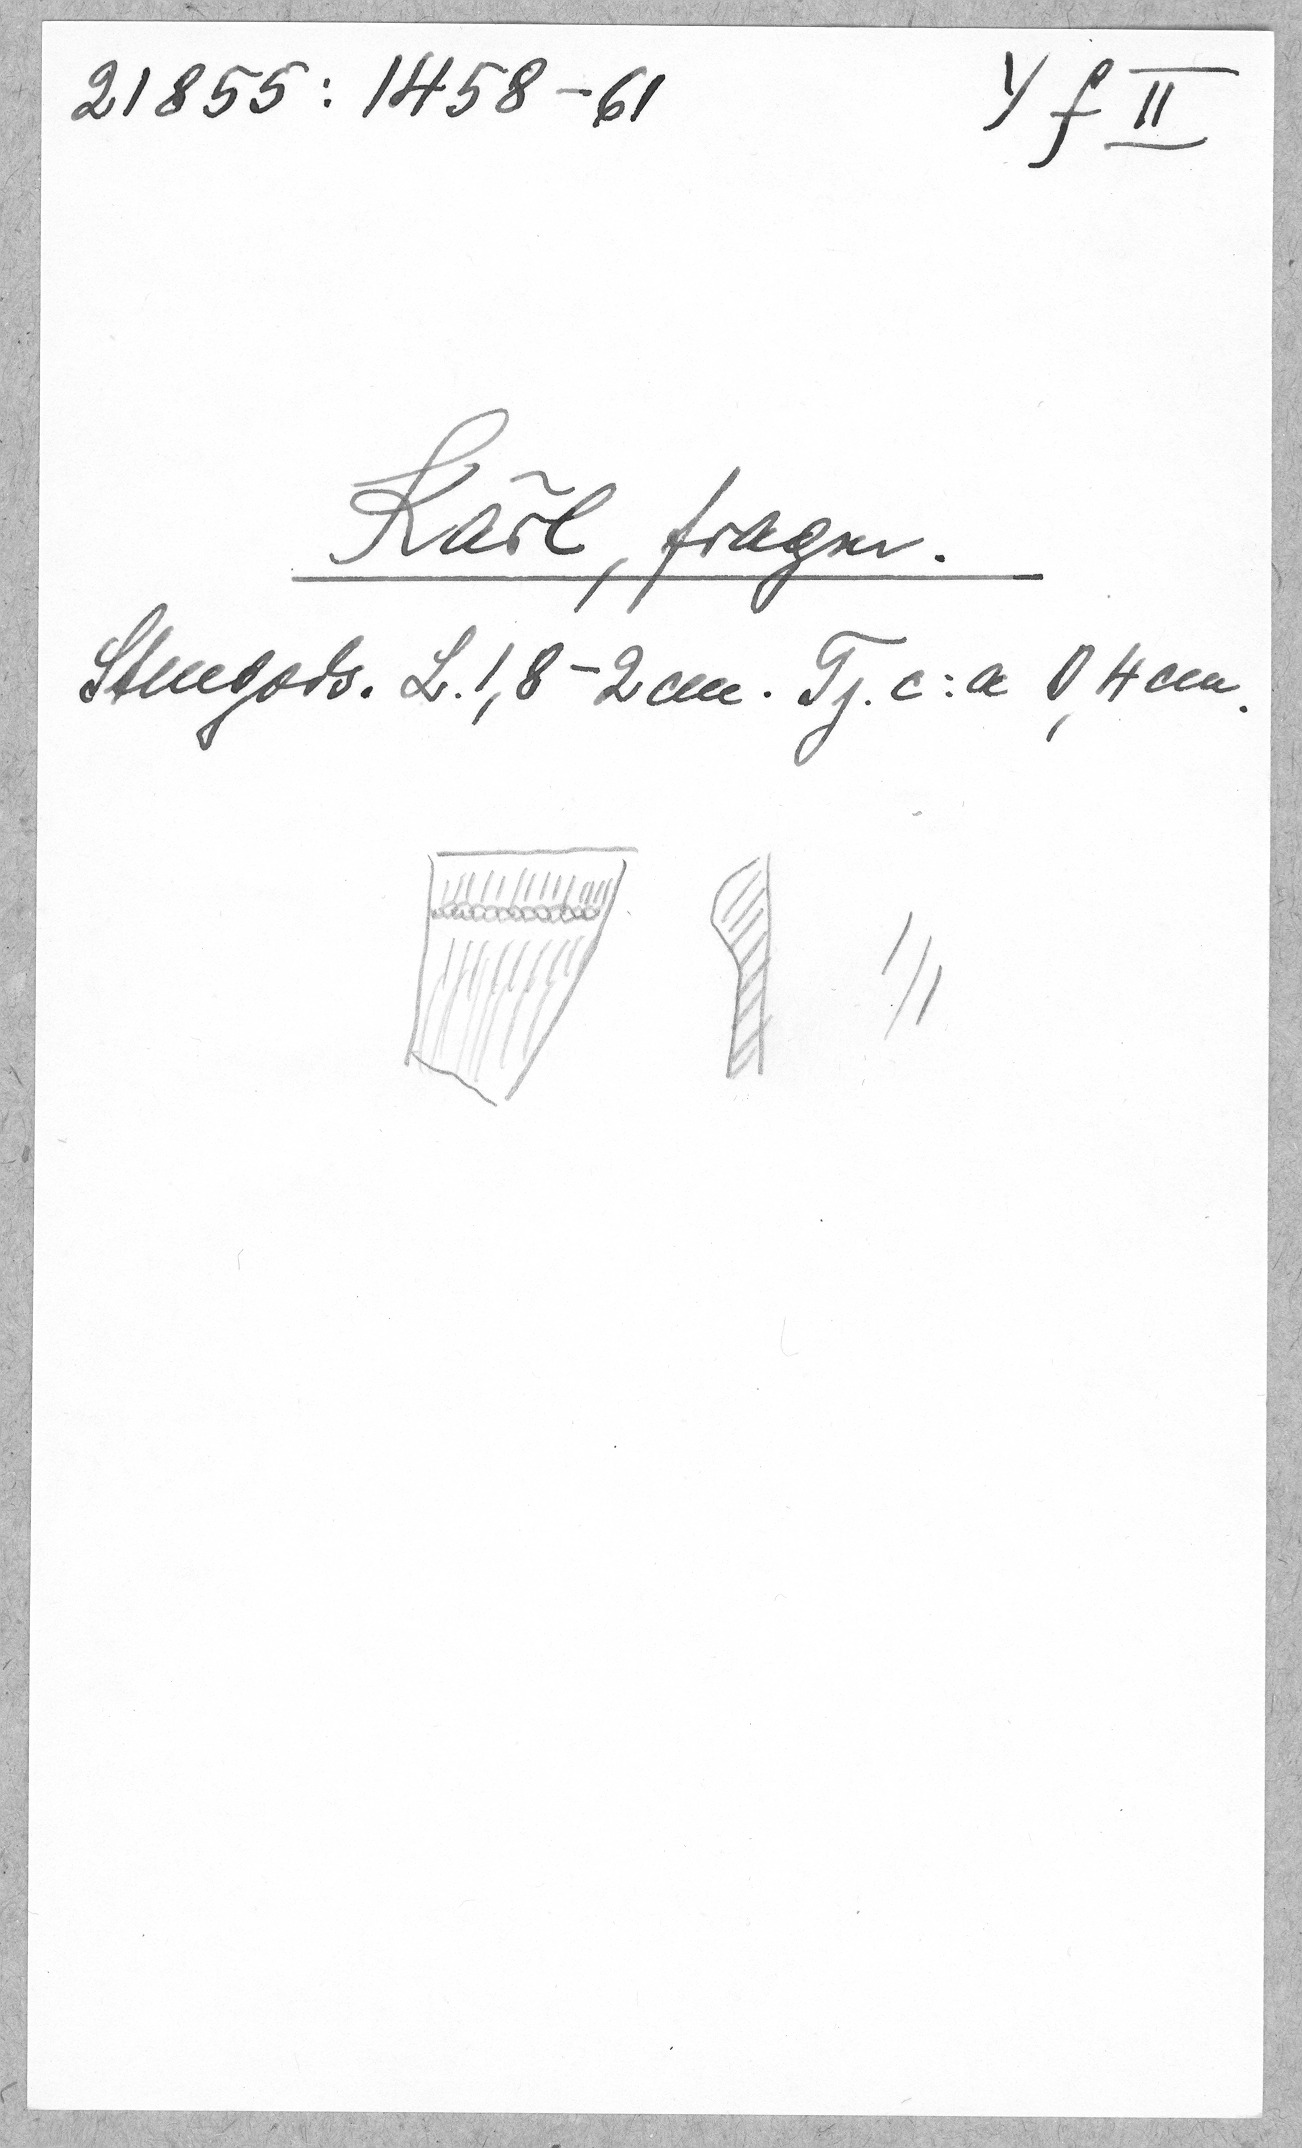 21855: 1458-61 Y f II
Kärl, fragm.
Stengods. L. 1,8-2 cm. Tj. c:a 0,4 cm.
1/1